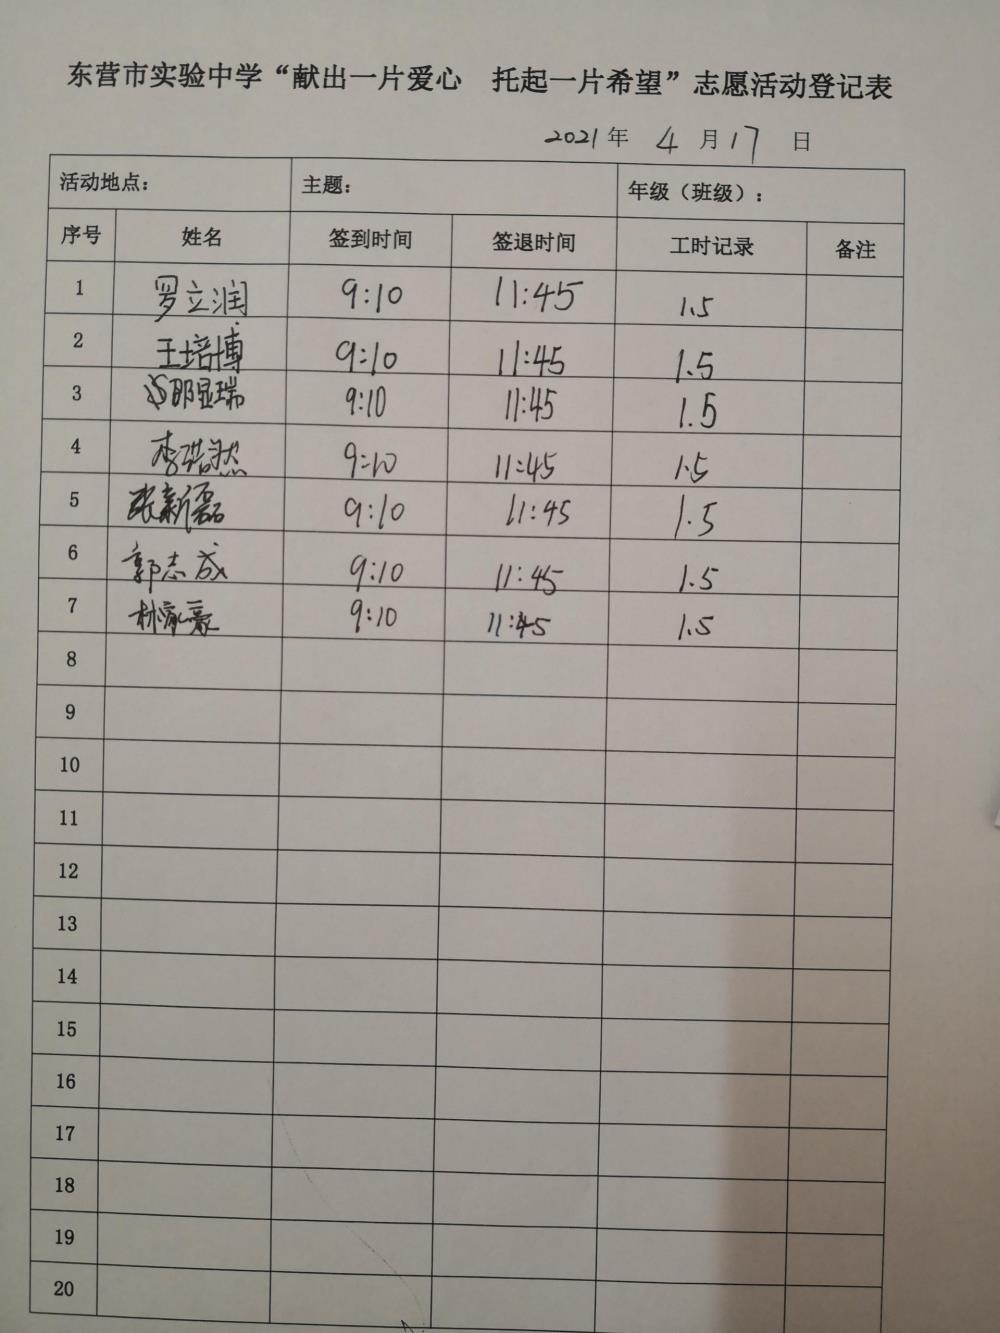 东营市实验中学“献出一片爱心 托起一片希望”志愿活动登记表
2021年 4 月17 日
活动地点： 主题： 年级（班级）：
序号 姓名 签到时间 签退时间 工时记录 备注
1 罗立润 9:10 11:45 1.5
2 王培博 9:10 11:45 1.5
3 邵显瑞 9:10 11:45 1.5
4 李浩然 9:10 11:45 1.5
5 张新磊 9:10 11:45 1.5
6 郭志成 9:10 11:45 1.5
7 9:10 11:45 1.5
8
9
10
11
12
13
14
15
16
17
18
19
20